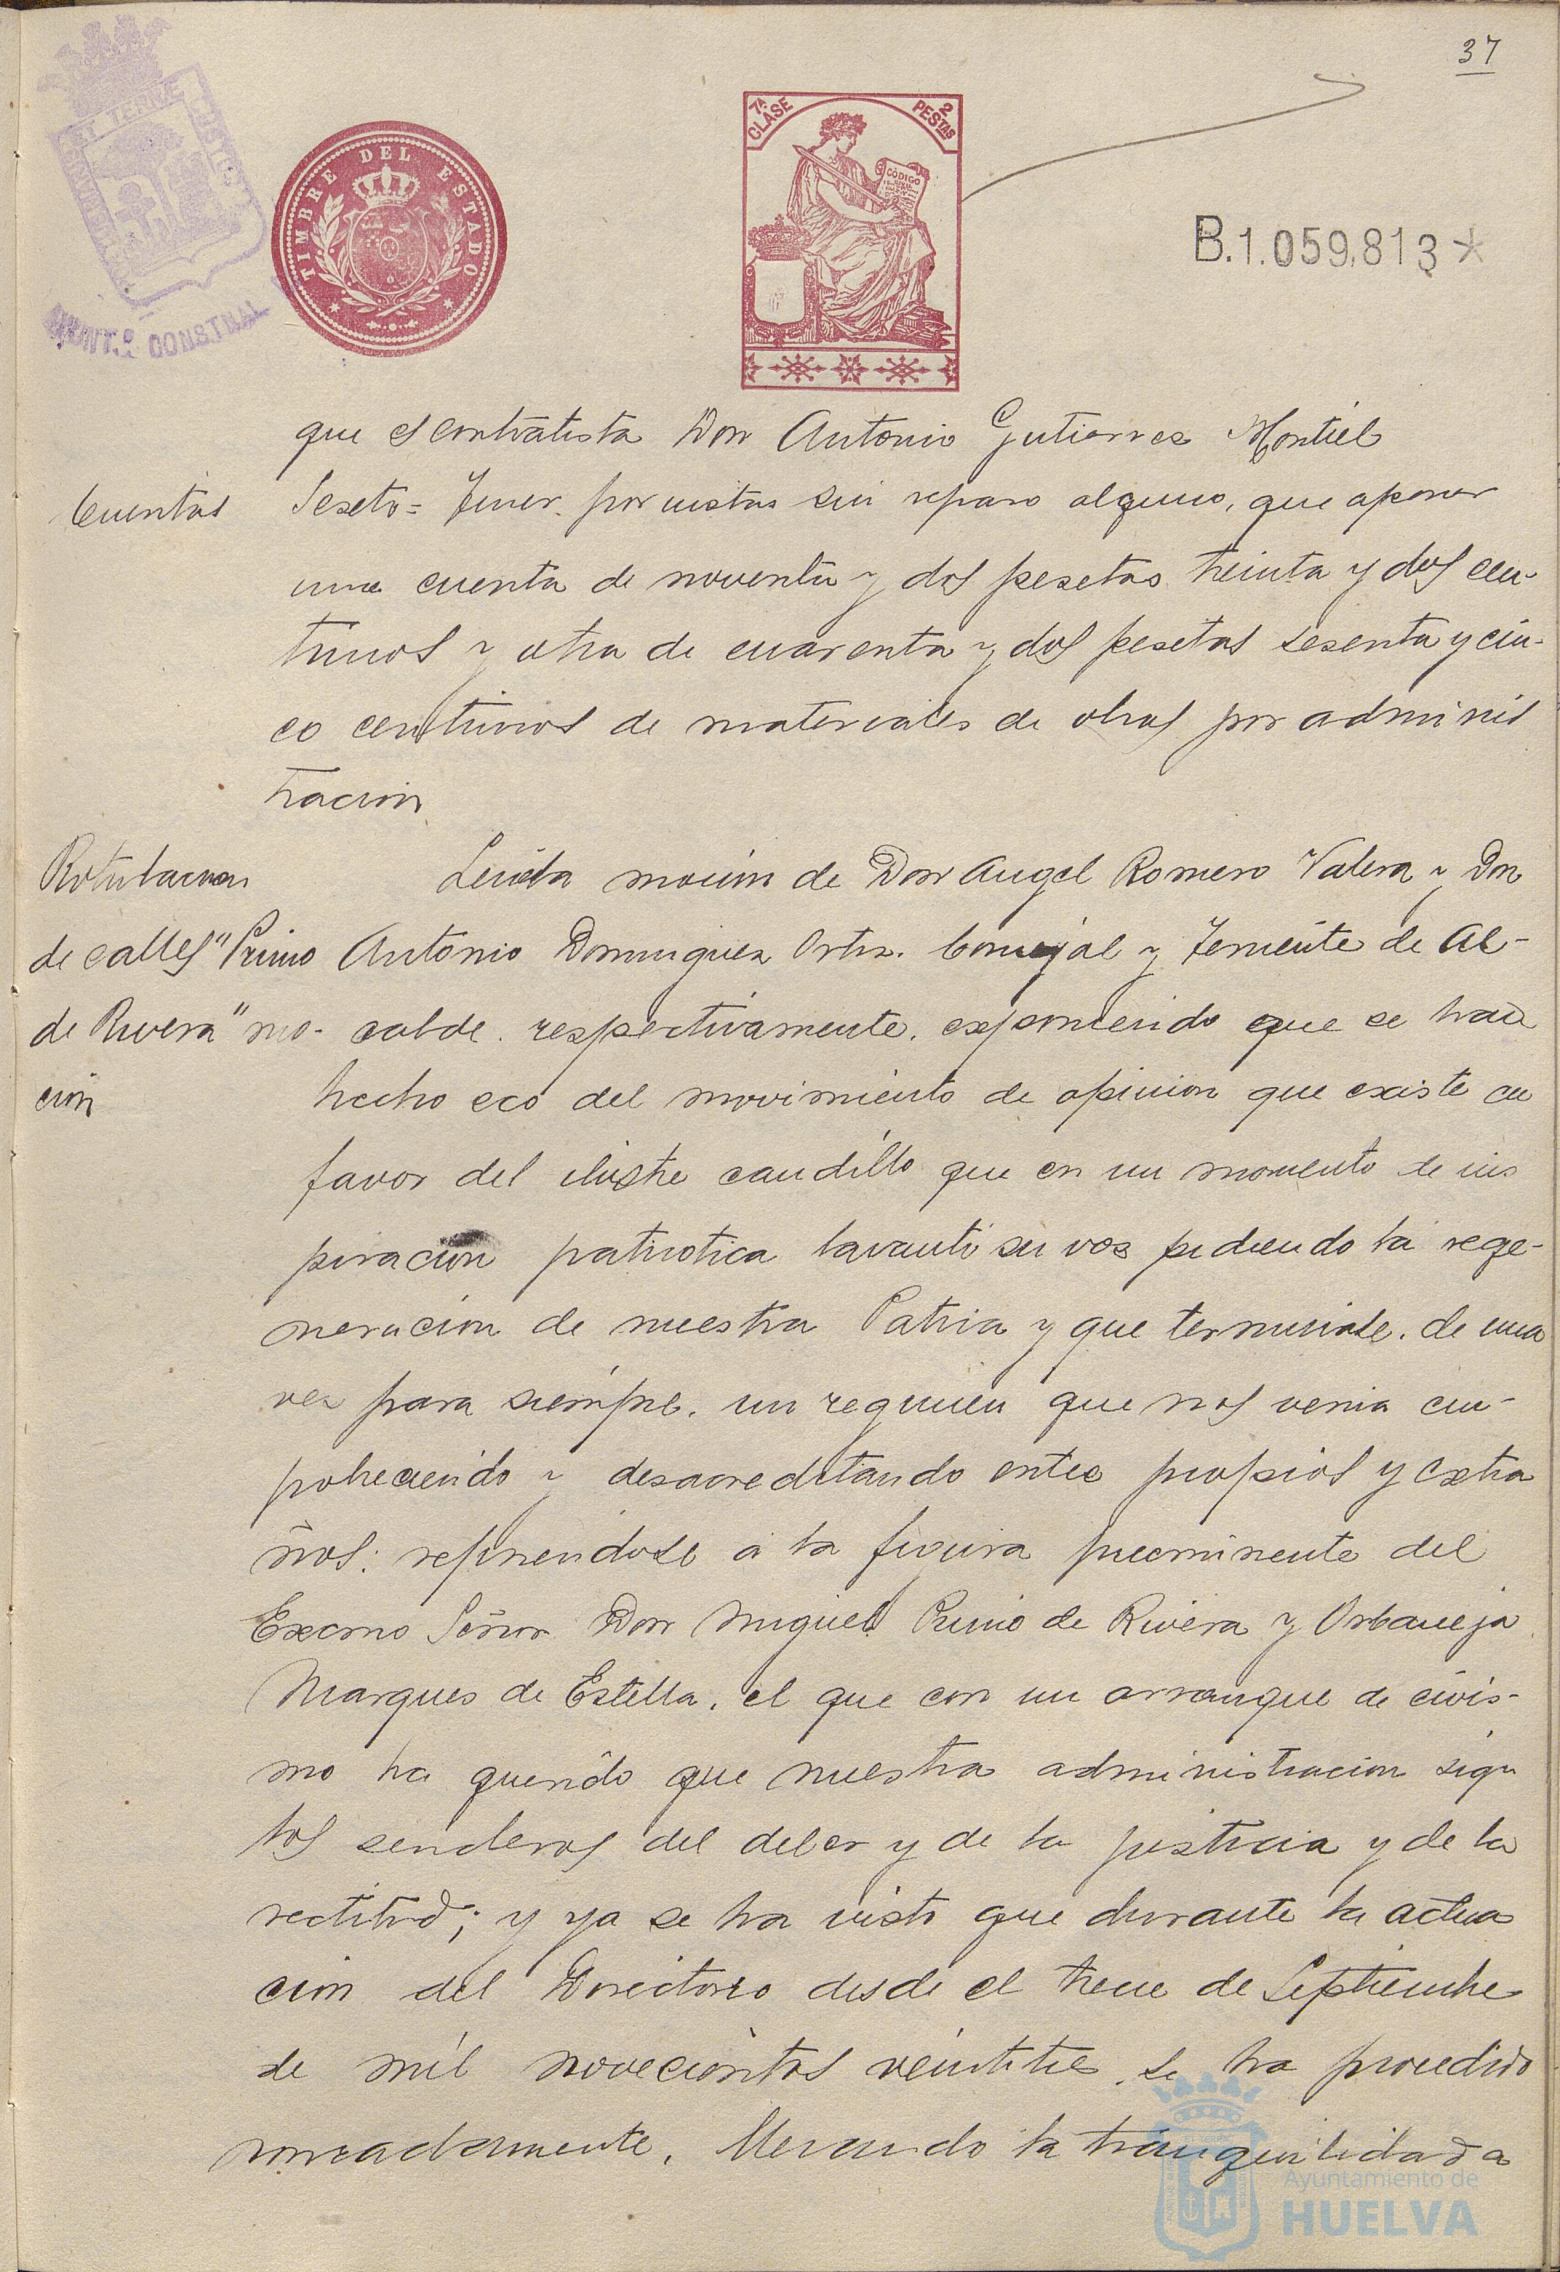 37
TIMBRE DEL ESTADO
7ª CLASE
2 PESTAS
CÓDIGO
B.1.059.813*
AYUNT.º CONSTNAL
que el contratista Don Antonio Gutierrez Montiel
Cuentas
Sexto = Tener por vistas sin reparo alguno, que aponer
una cuenta de noventa y dos pesetas treinta y dos cen-
timos y otra de cuarenta y dos pesetas sesenta y cin-
co centimos de materiales de obras por adminis
tracion
Rotulacion
de calles "Primo
de Rivera" mo-
ción
Leida mocion de Don Angel Romero Valera y Don
Antonio Dominguez Ortiz. Concejal y Teniente de Al-
calde respectivamente. exponiendo que se han
hecho eco del movimiento de opinion que existe en
favor del ilustre caudillo que en un momento de ins
piracion patriotica lavantó su voz pidiendo la rege-
neracion de nuestra Patria y que terminase. de una
vez para siempre. un regimen que nos venia em-
pobreciendo y desacreditando entre propios y extra
ños: refiriendose a la figura preeminente del
Excmo Señor Don Miguel Primo de Rivera y Orbaneja
Marques de Estella. el que con un arranque de civis-
mo ha querido que nuestra administracion siga
los senderos del deber y de la justicia y de la
rectitud; y ya se ha visto que durante la actua
cion del Directorio desde el trece de Septiembre
de mil novecientos veintitres se ha procedido
honradamente. llevando la tranquilidad a
Ayuntamiento de
HUELVA